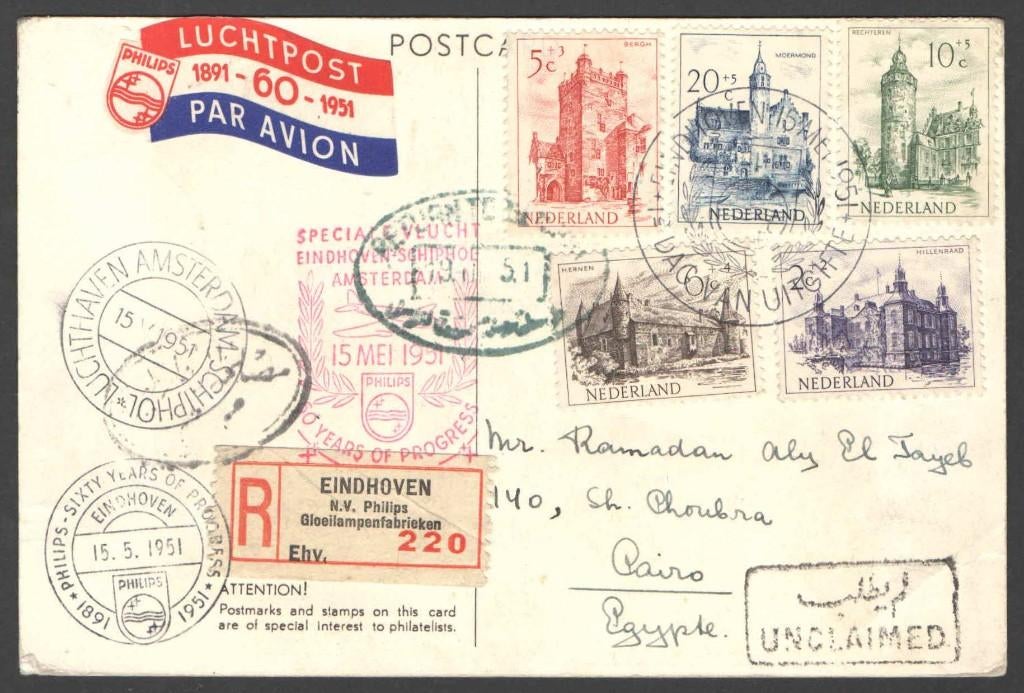 LUCHTPOST
PHILIPS
1891 - 60 - 1951
PAR AVION
POSTCA
5+3 c
BERGH
NEDERLAND
20+5 c
MOERMOND
NEDERLAND
RECHTEREN
10+5 c
NEDERLAND
EINDHOVEN 15 MEI 1951
DAG VAN UITGIFTE
HERNEN
6+4 c
NEDERLAND
2
HILLENRAAD
NEDERLAND
SPECIALE VLUCHT
EINDHOVEN-SCHIPHOL
AMSTERDAM
15 MEI 1951
PHILIPS
YEARS OF PROGRESS
RETURN TO
51
LUCHTHAVEN AMSTERDAM-SCHIPHOL
15 V 1951
Mr. Ramadan Aly El Tayeb
140, Sh. Choubra
Cairo
Egypte.
R
EINDHOVEN
N.V. Philips
Gloeilampenfabrieken
Ehv. 220
PHILIPS-SIXTY YEARS OF PROGRESS
EINDHOVEN
15. 5. 1951
PHILIPS
1891 1951
ATTENTION!
Postmarks and stamps on this card
are of special interest to philatelists.
لم يطلب
UNCLAIMED